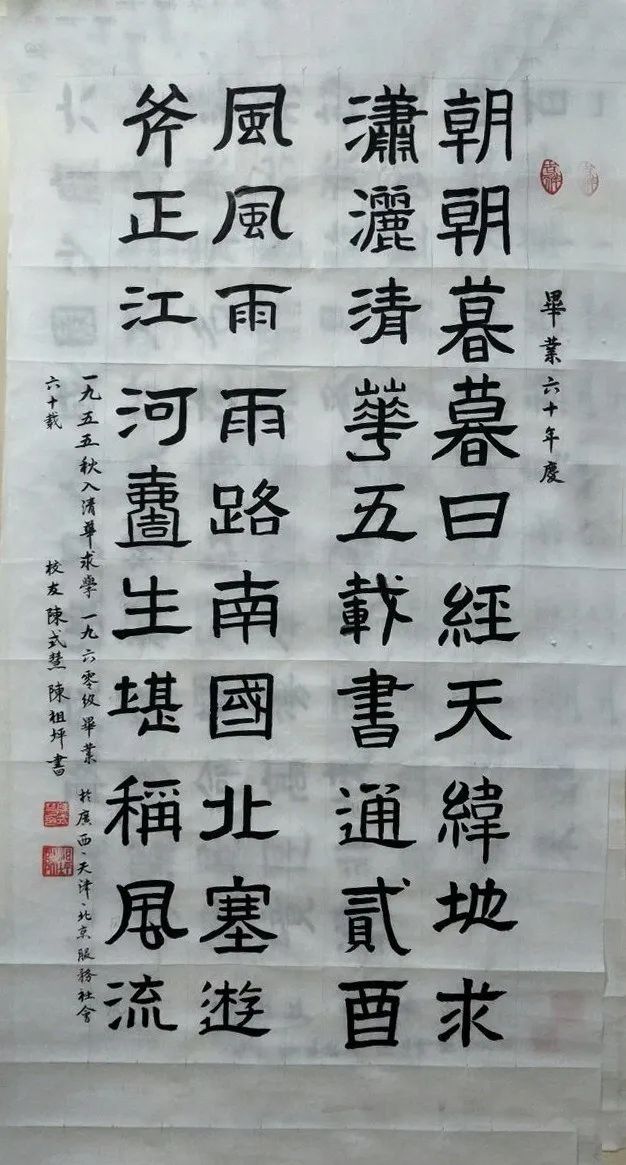 畢業六十年慶
朝朝暮暮曰經天緯地求
瀟灑清華五載書通貳酉
風風雨雨路南國北塞遊
斧正江河畫生堪稱風流
一九五五秋入清華求學 一九六零級畢業 於廣西、天津、北京服務社會
六十載 校友陳式慧 陳祖坪書